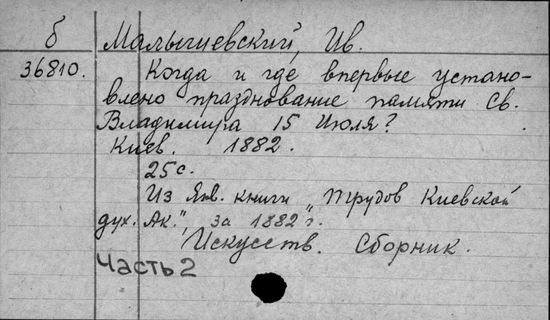 б Малышевский, Ив.
36810. Когда и где впервые установ-
влено празднование памяти Св.
Владимира 15 Июля?
Киев. 1882.
25 с.
Из Янв. книги „Трудов Киевской
дух. Ак.", за 1882 г.
Искусств. Сборник.
Часть 2